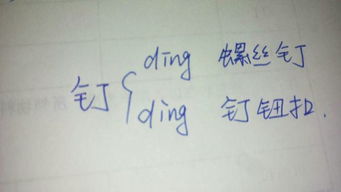 dīng 螺丝钉
钉{
dìng 钉钮扣.